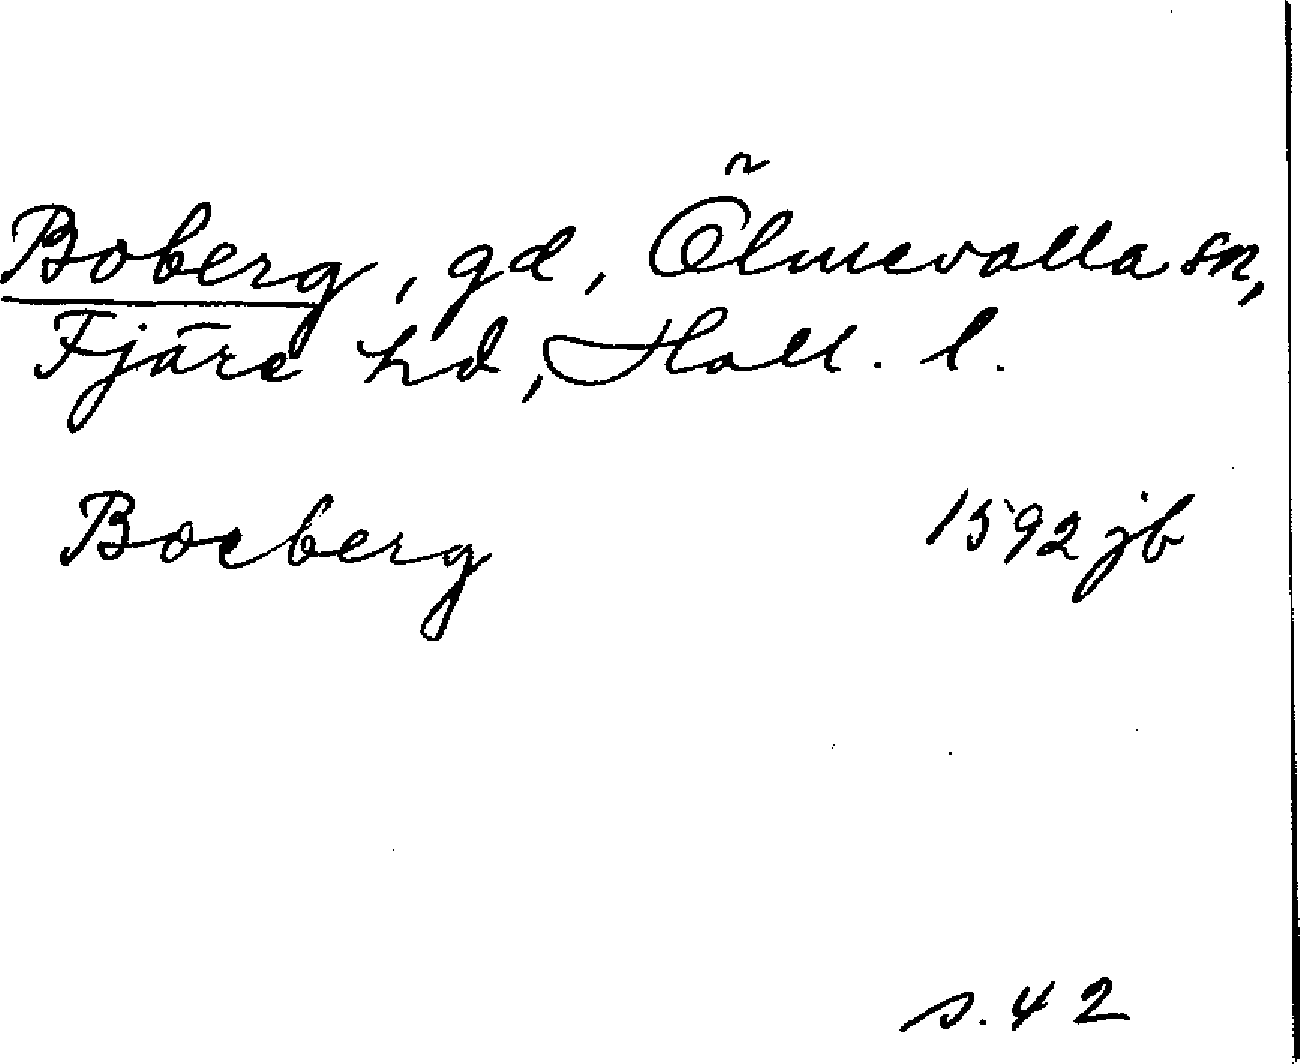 Boberg, gd, Ölmevalla sn,
Fjäre hd, Hall. l.
Boeberg 1592 jb
s. 42